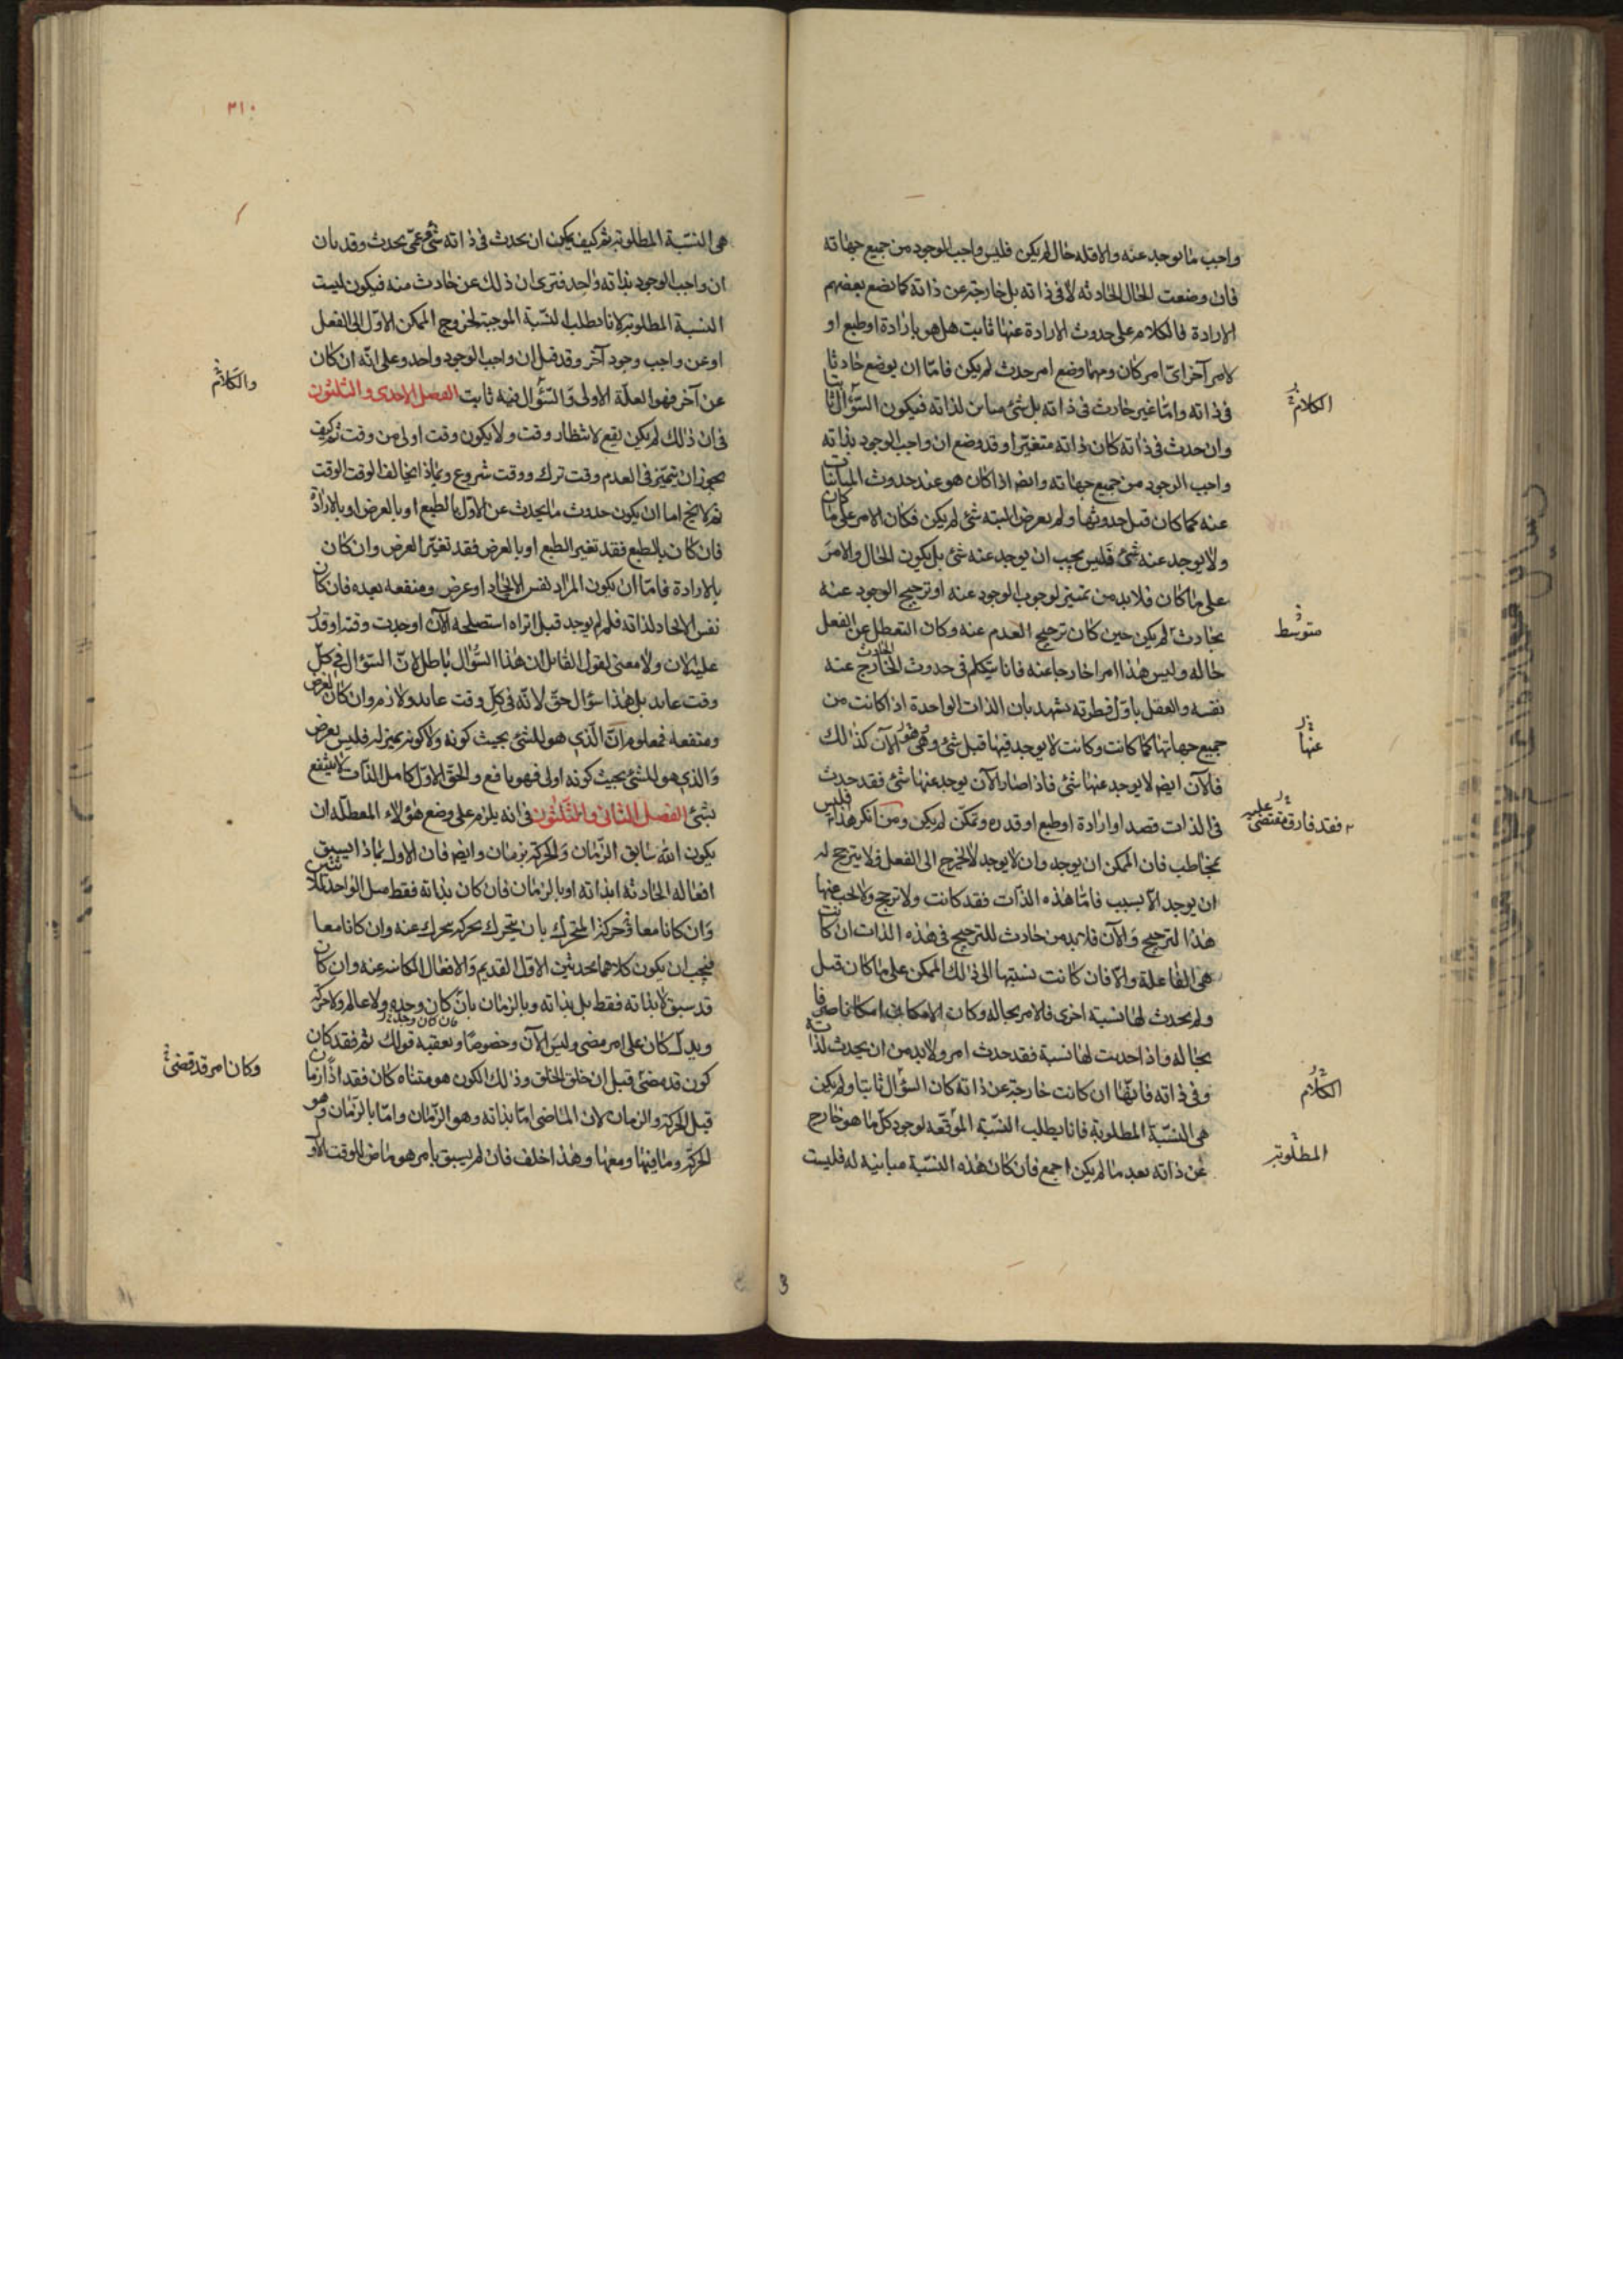 واجب ما يوجد عنه والا فله حال لم يكن فليس واجب الوجود من جميع جهاته
فان وضعت الحال الحادثه لا فى ذاته بل خارجة عن ذاته كما يضع بعضهم
الارادة فالكلام على حدوث الارادة عنها ثابت هل هو بارادة او طبع او
لامر آخر اىّ امر كان ومهما وضع امر حدث لم يكن فامّا ان يوضع حادثا
فى ذاته وامّا غير حادث فى ذاته بل شئ مباين لذاته فيكون السؤال ثابتا
الكلام
وان حدث فى ذاته كان ذاته متغيّرا وقد وضع ان واجب الوجود بذاته
واجب الوجود من جميع جهاته وايضا اذا كان هو عند حدوث المباينات
عنه كما كان قبل حدوثها ولم يعرض البته شئ لم يكن فكان الامر على ما كان
ولا يوجد عنه شئ فليس يجب ان يوجد عنه شئ بل يكون الحال والامر
على ما كان فلا بد من تمييز لوجوب الوجود عنه او ترجيح الوجود عنه
بحادث لم يكن حين كان ترجيح العدم عنه وكان التعطل عن الفعل
متوسّط
حاله وليس هذا امرا خارجا عنه فانا نتكلم فى حدوث الخارج عنه
الحادث
نفسه والعقل باوّل فطرته يشهد بان الذات الواحدة اذا كانت من
جميع جهاتها كما كانت وكانت لا يوجد فيها قبل شئ وهى الآن كذلك
عنها
فالآن ايضا لا يوجد عنها شئ فاذا صار الآن يوجد عنها شئ فقد حدث
فى الذات قصد او ارادة او طبع او قدره وتمكّن لم يكن ومن انكر هذا فليس
فقد فارق مقتضى عقله
نخاطب فان الممكن ان يوجد وان لا يوجد لا يخرج الى الفعل فلا يترجح له
ان يوجد الا بسبب فامّا هذه الذات فقد كانت ولا ترجح ولا يجب عنها
هذا الترجيح والآن فلا بد من حادث للترجيح فى هذه الذات ان كانت
هى الفاعلة والّا فان كانت نسبتها الى ذلك الممكن على ما كان قبل
ولم يحدث لها نسبة اخرى فالامر بحاله وكان الامكان امكانا صرفا
بحاله واذا حدثت لها نسبة فقد حدث امر ولا بد من ان يحدث لذاته
وفى ذاته فانّها ان كانت خارجة عن ذاته كان السؤال ثابتا ولم يكن
الكلام
هى النسبة المطلوبة فانا نطلب النسبة الموقعه لوجود كلّ ما هو خارج
عن ذاته بعد ما لم يكن اجمع فان كان هذه النسبة مباينة له فليست
المطلوبة
٣١٠
هى النسبة المطلوبة ثم كيف يمكن ان يحدث فى ذاته شئ وعمّن يحدث وقد بان
ان واجب الوجود بذاته واحد فترى ان ذلك عن حادث منه فيكون ليست
النسبة المطلوبة لانا نطلب النسبة الموجبة لخروج الممكن الاوّل الى الفعل
او عن واجب وجود آخر وقد قيل ان واجب الوجود واحد وعلى انّه ان كان
والكلام
عن آخر فهو العلّة الاولى والسؤال فيه ثابت الفصل الاحدى والثلثون
فى ان ذلك لم يكن يقع لانتظار وقت ولا يكون وقت اولى من وقت ثم كيف
يجوز ان يتميّز فى العدم وقت ترك ووقت شروع وبماذا يخالف الوقت الوقت
ثم لا يخ اما ان يكون حدوث ما يحدث عن الاوّل بالطبع او بالعرض او بالارادة
فان كان بالطبع فقد تغير الطبع او بالعرض فقد تغيّر العرض وان كان
بالارادة فامّا ان يكون المراد نفس الايجاد او غرض ومنفعه بعده فان كان
نفس الايجاد لذاته فلم لم يوجد قبل اتراه استصلحه الآن او حدث وقته او قدر
عليه الان ولا معنى لقول القائل ان هذا السؤال باطل لانّ السؤال فى كلّ
وقت عايد بل هذا سؤال حقّ لانّه فى كلّ وقت عايد ولازم وان كان لغرض
ومنفعه فمعلوم انّ الذى هو للشئ بحيث كونه ولا كونه بمنزلة فليس بغرض
والذى هو للشئ بحيث كونه اولى فهو نافع والحقّ الاوّل كامل الذات لا ينتفع
بشئ الفصل الثانى والثلثون فى انه يلزم على وضع هؤلاء المعطلّه ان
يكون الله سابق الزمان والحركة بزمان وايضا فان الاول بماذا يسبق
افعاله الحادثه ابذاته او بالزمان فان كان بذاته فقط مثل الواحد للاثنين
وان كانا معا وحركة المتحرك بان يتحرك بحركة يتحرك عنه وان كانا معا
فيجب ان يكون كلاهما محدثين الاوّل القديم والافعال الكائنه عنه وان كان
قد سبق لا بذاته فقط بل بذاته وبالزمان بانّ كان وحده ولا عالم ولا حركة
بان كان وحده
ويدل كان على امر مضى وليس الآن وخصوصا ويعقبه قولك ثم فقد كان
وكان امر قد قضى
كون قد مضى قبل ان خلق الخلق وذلك الكون هو متناه كان فقد اذا زمان
قبل الحركة والزمان لان الماضى امّا بذاته وهو الزمان وامّا بالزمان وهو
الحركة وما فيها ومعها وهذا خلف فان لم يسبق بامر هو ماض للوقت الاو